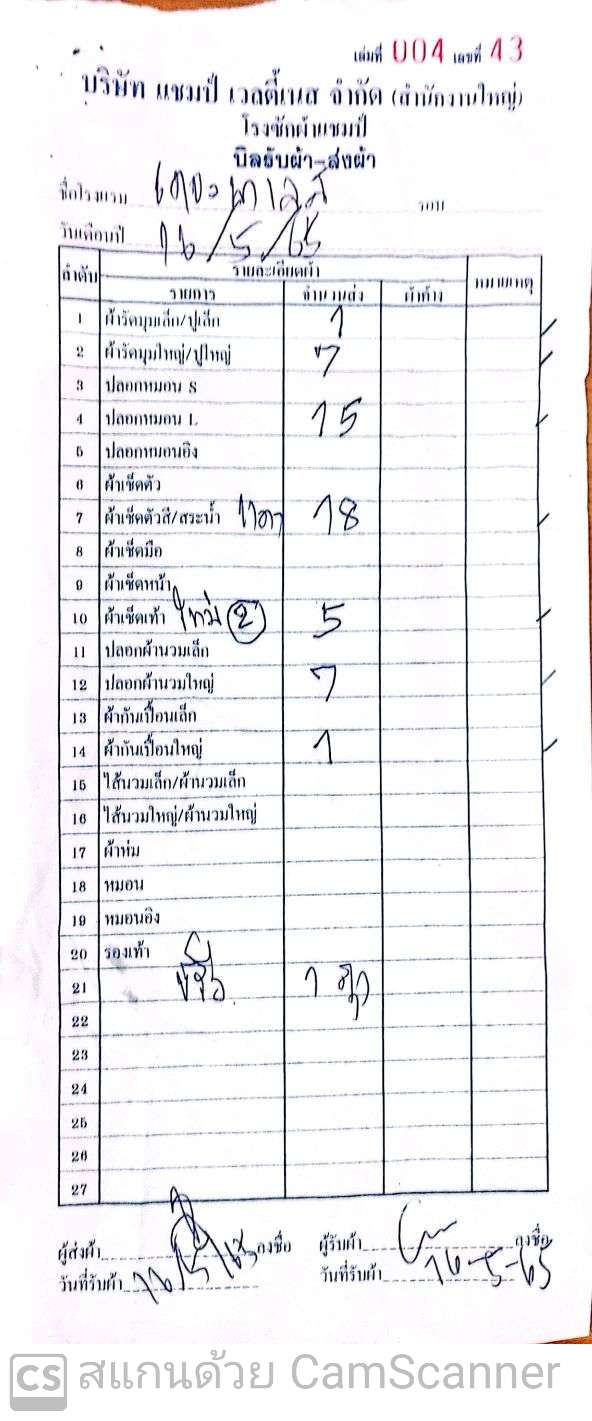 เล่มที่ 004 เลขที่ 43
บริษัท แชมป์ เวลตี้เนส จำกัด (สำนักงานใหญ่)
โรงซักผ้าแชมป์
บิลรับผ้า-ส่งผ้า
ชื่อโรงแรม รอบ
วันเดือนปี 16/5/65
ลำดับ รายละเอียดผ้า หมายเหตุ
รายการ จำนวนส่ง ผ้าค้าง
1 ผ้ารัดมุมเล็ก/ปูเล็ก 1
2 ผ้ารัดมุมใหญ่/ปูใหญ่ 7
3 ปลอกหมอน S
4 ปลอกหมอน L 15
5 ปลอกหมอนอิง
6 ผ้าเช็ดตัว
7 ผ้าเช็ดตัวสี/สระน้ำ 18
8 ผ้าเช็ดมือ
9 ผ้าเช็ดหน้า
10 ผ้าเช็ดเท้า ใหม่ 2 5
11 ปลอกผ้านวมเล็ก
12 ปลอกผ้านวมใหญ่ 7
13 ผ้ากันเปื้อนเล็ก
14 ผ้ากันเปื้อนใหญ่ 1
15 ไส้นวมเล็ก/ผ้านวมเล็ก
16 ไส้นวมใหญ่/ผ้านวมใหญ่
17 ผ้าห่ม
18 หมอน
19 หมอนอิง
20 รองเท้า
21 1
22
23
24
25
26
27
ผู้ส่งผ้า ลงชื่อ ผู้รับผ้า ลงชื่อ
วันที่รับผ้า 16/5/65 วันที่รับผ้า 16-5-65
CS สแกนด้วย CamScanner